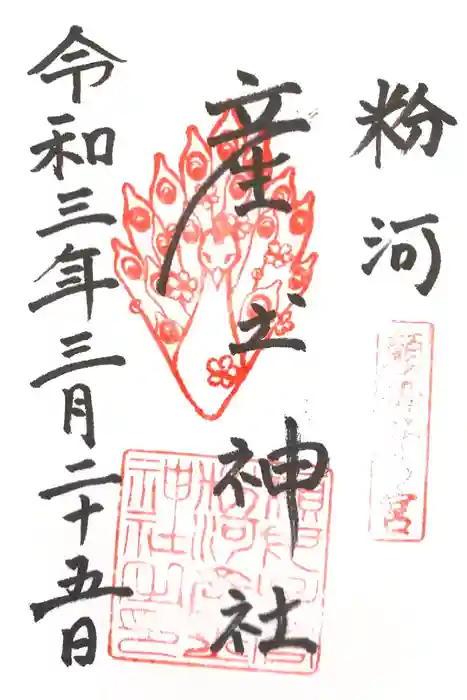 粉河
産土神社
令和三年三月二十五日